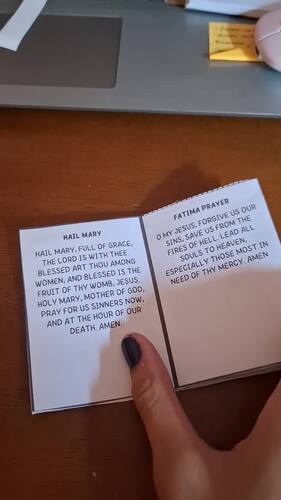 HAIL MARY
HAIL MARY, FULL OF GRACE,
THE LORD IS WITH THEE.
BLESSED ART THOU AMONG
WOMEN, AND BLESSED IS THE
FRUIT OF THY WOMB, JESUS.
HOLY MARY, MOTHER OF GOD,
PRAY FOR US SINNERS NOW,
AND AT THE HOUR OF OUR
DEATH. AMEN
FATIMA PRAYER
O MY JESUS, FORGIVE US OUR
SINS, SAVE US FROM THE
FIRES OF HELL. LEAD ALL
SOULS TO HEAVEN,
ESPECIALLY THOSE MOST IN
NEED OF THY MERCY. AMEN